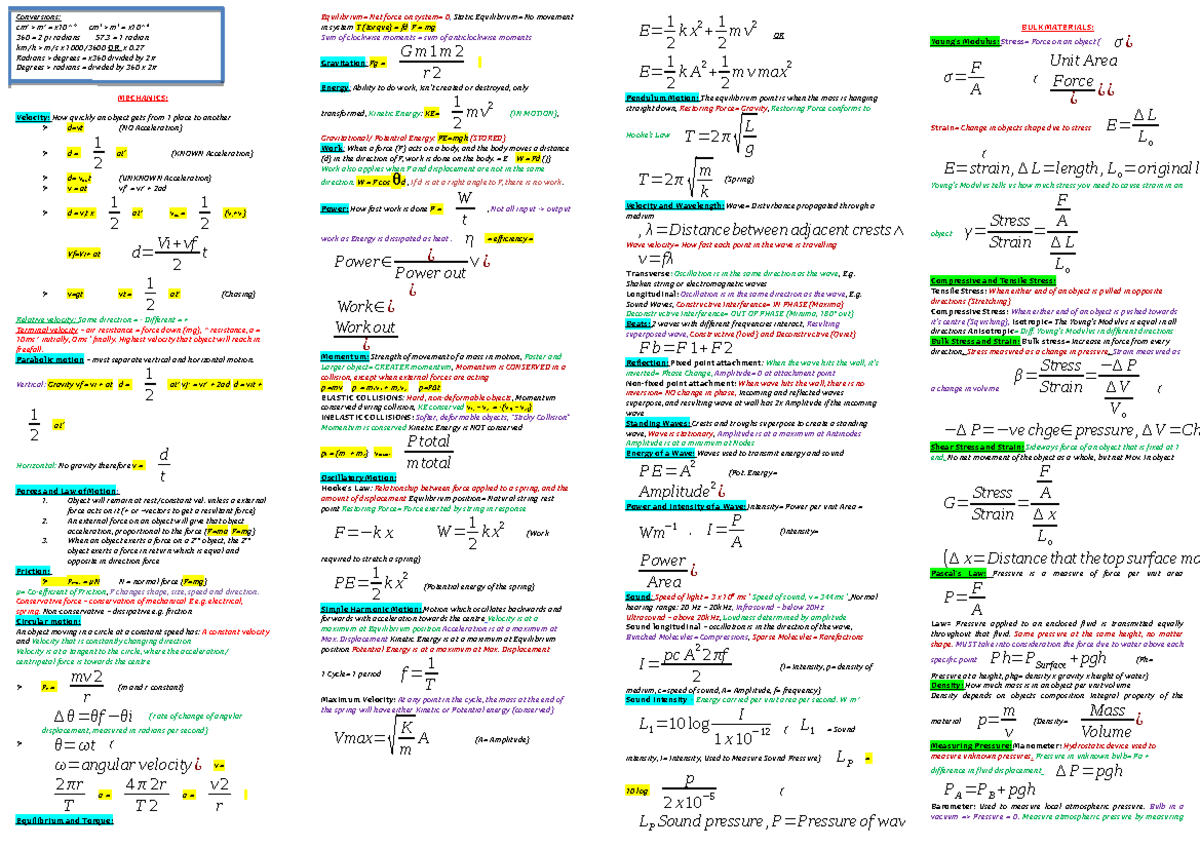 Conversions:
cm² > m² = x10^-4 cm³ > m³ = x10^-6
360 = 2 pi radians 57.3 = 1 radian
km/h > m/s x1000/3600 OR x 0.27
Radians > degrees = x360 divided by 2π
Degrees > radians = divided by 360 x 2π
MECHANICS:
Velocity: How quickly an object gets from 1 place to another
d=vt (NO Acceleration)
d = 1/2 at² (KNOWN Acceleration)
(UNKNOWN Acceleration)
v = at vf² = vi² + 2ad
Vf=Vi+ at d = (Vi + vf)/2 t
v=gt 1/2 at² (Chasing)
Relative velocity: Same direction = - Different = +
Terminal velocity – air resistance = force down (mg), ^ resistance, a =
freefall.
Parabolic motion – must separate vertical and horizontal motion.
Vertical: Gravity vf=vi + at d = 1/2 at² vf² = vi² + 2ad d=vit +
1/2 at²
Horizontal: No gravity therefore v = d/t
Forces and Law of Motion:
1. Object will remain at rest/constant vel. unless a external
force acts on it (+ or –vectors to get a resultant force)
2. An external force on an object will give that object
acceleration, proportional to the force (F=ma F=mg)
3. When an object exerts a force on a 2nd object, the 2nd
object exerts a force in return which is equal and
opposite in direction force
Friction:
N = normal force (F=mg)
μ= Co-efficient of Friction, F changes shape, size, speed and direction.
Conservative force – conservation of mechanical E e.g. electrical,
spring. Non conservative – dissipative e.g. friction
Circular motion:
An object moving in a circle at a constant speed has: A constant velocity
and Velocity that is constantly changing direction
Velocity is at a tangent to the circle, where the acceleration/
centripetal force is towards the centre
mv2/r (m and r constant)
Δθ=θf−θi (rate of change of angular
displacement, measured in radians per second)
θ=ωt (
ω=angular velocity¿ v=
2πr/T a = 4π2r/T2 a = v2/r
Equilibrium and Torque:
Equilibrium= Net force on system= 0, Static Equilibrium= No movement
in system T(torque) = fd F = mg
Sum of clockwise moments = sum of anticlockwise moments
Gravitation: Fg = Gm1m2/r2
Energy: Ability to do work, isn't created or destroyed, only
transformed, Kinetic Energy: KE= 1/2 mv² (IN MOTION),
Gravitational/ Potential Energy: PE=mgh (STORED)
Work: When a force (F) acts on a body, and the body moves a distance
(d) in the direction of F, work is done on the body. = E W = Fd (J)
Work also applies when F and displacement are not in the same
direction. W = F cos θd, If d is at a right angle to F, there is no work.
Power: How fast work is done P = W/t, Not all input -> output
work as Energy is dissipated as heat. η =efficiency=
Power∈ ¿/Power out ∨¿
¿
Work∈¿
Work out/¿
Momentum: Strength of movement of a mass in motion, Faster and
Larger object= GREATER momentum, Momentum is CONSERVED in a
collision, except when external forces are acting
p=mv
ELASTIC COLLISIONS: Hard, non-deformable objects, Momentum
conserved during collision, KE conserved
INELASTIC COLLISIONS: Softer, deformable objects, "Sticky Collision"
Momentum is conserved Kinetic Energy is NOT conserved
P total/m total
Oscillatory Motion:
Hooke's Law: Relationship between force applied to a spring, and the
amount of displacement Equilibrium position= Natural string rest
point Restoring Force= Force exerted by string in response
F=−kx W=1/2 kx² (Work
required to stretch a spring)
PE=1/2 kx² (Potential energy of the spring)
Simple Harmonic Motion: Motion which oscillates backwards and
forwards with acceleration towards the centre Velocity is at a
maximum at Equilibrium position Acceleration is at a maximum at
Max. Displacement Kinetic Energy is at a maximum at Equilibrium
position Potential Energy is at a maximum at Max. Displacement
1 Cycle= 1 period f=1/T
Maximum Velocity: At any point in the cycle, the mass at the end of
the spring will have either Kinetic or Potential energy (conserved)
Vmax=√(K/m) A (A= Amplitude)
E=1/2 kx²+1/2 mv² OR
E=1/2 kA²+1/2 mvmax²
Pendulum Motion: The equilibrium point is when the mass is hanging
straight down, Restoring Force= Gravity, Restoring Force conforms to
Hooke's Law T=2π√(L/g)
T=2π√(m/k) (Spring)
Velocity and Wavelength: Wave= Disturbance propagated through a
medium
, λ=Distance between adjacent crests∧
Wave velocity= How fast each point in the wave is travelling
v=fλ
Transverse: Oscillation is in the same direction as the wave, E.g.
Shaken string or electromagnetic waves
Longitudinal: Oscillation is in the same direction as the wave, E.g.
Sound Waves, Constructive Interference= IN PHASE (Maxima)
Deconstructive Interference= OUT OF PHASE (Minima, 180° out)
Beats: 2 waves with different frequencies interact, Resulting
superposed wave, Constructive (loud) and Deconstructive (Quiet)
Fb=F1+F2
Reflection: Fixed point attachment: When the wave hits the wall, it's
inverted= Phase Change, Amplitude= 0 at attachment point
Non-fixed point attachment: When wave hits the wall, there is no
inversion= NO change in phase, Incoming and reflected waves
superpose, and resulting wave at wall has 2x Amplitude if the incoming
wave
Standing Waves: Crests and troughs superpose to create a standing
wave, Wave is stationary, Amplitude is at a maximum at Antinodes
Amplitude is at a minimum at Nodes
Energy of a Wave: Waves used to transmit energy and sound
PE=A² (Pot. Energy=
Amplitude²¿
Power and Intensity of a Wave: Intensity= Power per unit Area =
Wm⁻¹ . I=P/A (Intensity=
Power/Area ¿
Sound: Speed of light = 3 x 10⁸ ms⁻¹ Speed of sound, v = 344ms⁻¹, Normal
hearing range: 20 Hz – 20kHz, Infrasound – below 20Hz
Ultrasound – above 20kHz, Loudness determined by amplitude
Sound longitudinal – oscillation is in the direction of the wave,
Bunched Molecules= Compressions, Sparse Molecules= Rarefactions
I=pcA²2πf/2 (I= Intensity, p= density of
medium, c=speed of sound, A= Amplitude, f= frequency)
Sound Intensity Energy carried per unit area per second. W m²
L₁=10log I/1x10⁻¹² ( L₁ = Sound
intensity, I= Intensity, Used to Measure Sound Pressure) L_P =
10 log p/2x10⁻⁵ (
L_P Sound pressure, P=Pressure of wav
BULK MATERIALS:
Young's Modulus: Stress= Force on an object ( σ¿
σ=F/A ( Unit Area
Force/¿ ¿¿
Strain= Change in objects shaped due to stress E=ΔL/L₀
(
E=strain, ΔL=length, L₀=original l
Young's Modulus tells us how much stress you need to cause strain in an
object γ=Stress/Strain=(F/A)/(ΔL/L₀)
Compressive and Tensile Stress:
Tensile Stress: When either end of an object is pulled in opposite
directions (Stretching)
Compressive Stress: When either end of an object is pushed towards
it's centre (Squishing), Isotropic= The Young's Modulus is equal in all
directions Anisotropic= Diff. Young's Modulus in different directions
Bulk Stress and Strain: Bulk stress= Increase in force from every
direction, Stress measured as a change in pressure, Strain measured as
a change in volume β=Stress/Strain=−ΔP/(ΔV/V₀) (
−ΔP=−ve chge∈pressure, ΔV=Ch
Shear Stress and Strain: Sideways force of an object that is fixed at 1
end, No net movement of the object as a whole, but net Mov. in object
G=Stress/Strain=(F/A)/(Δx/L₀)
(Δx=Distance that the top surface mo
Pascal's Law: Pressure is a measure of force per unit area
P=F/A
Law= Pressure applied to an enclosed fluid is transmitted equally
throughout that fluid. Same pressure at the same height, no matter
shape. MUST take into consideration the force due to water above each
specific point Ph=P_Surface+pgh (Ph=
Pressure at a height, phg= density x gravity x height of water)
Density: How much mass in an object per unit volume
Density depends on objects composition Integral property of the
material p=m/v (Density= Mass/Volume ¿
Measuring Pressure: Manometer: Hydrostatic device used to
measure unknown pressures, Pressure in unknown bulb= Pa +
difference in fluid displacement, ΔP=pgh
P_A=P_B+pgh
Barometer: Used to measure local atmospheric pressure. Bulb in a
vacuum => Pressure = 0. Measure atmospheric pressure by measuring